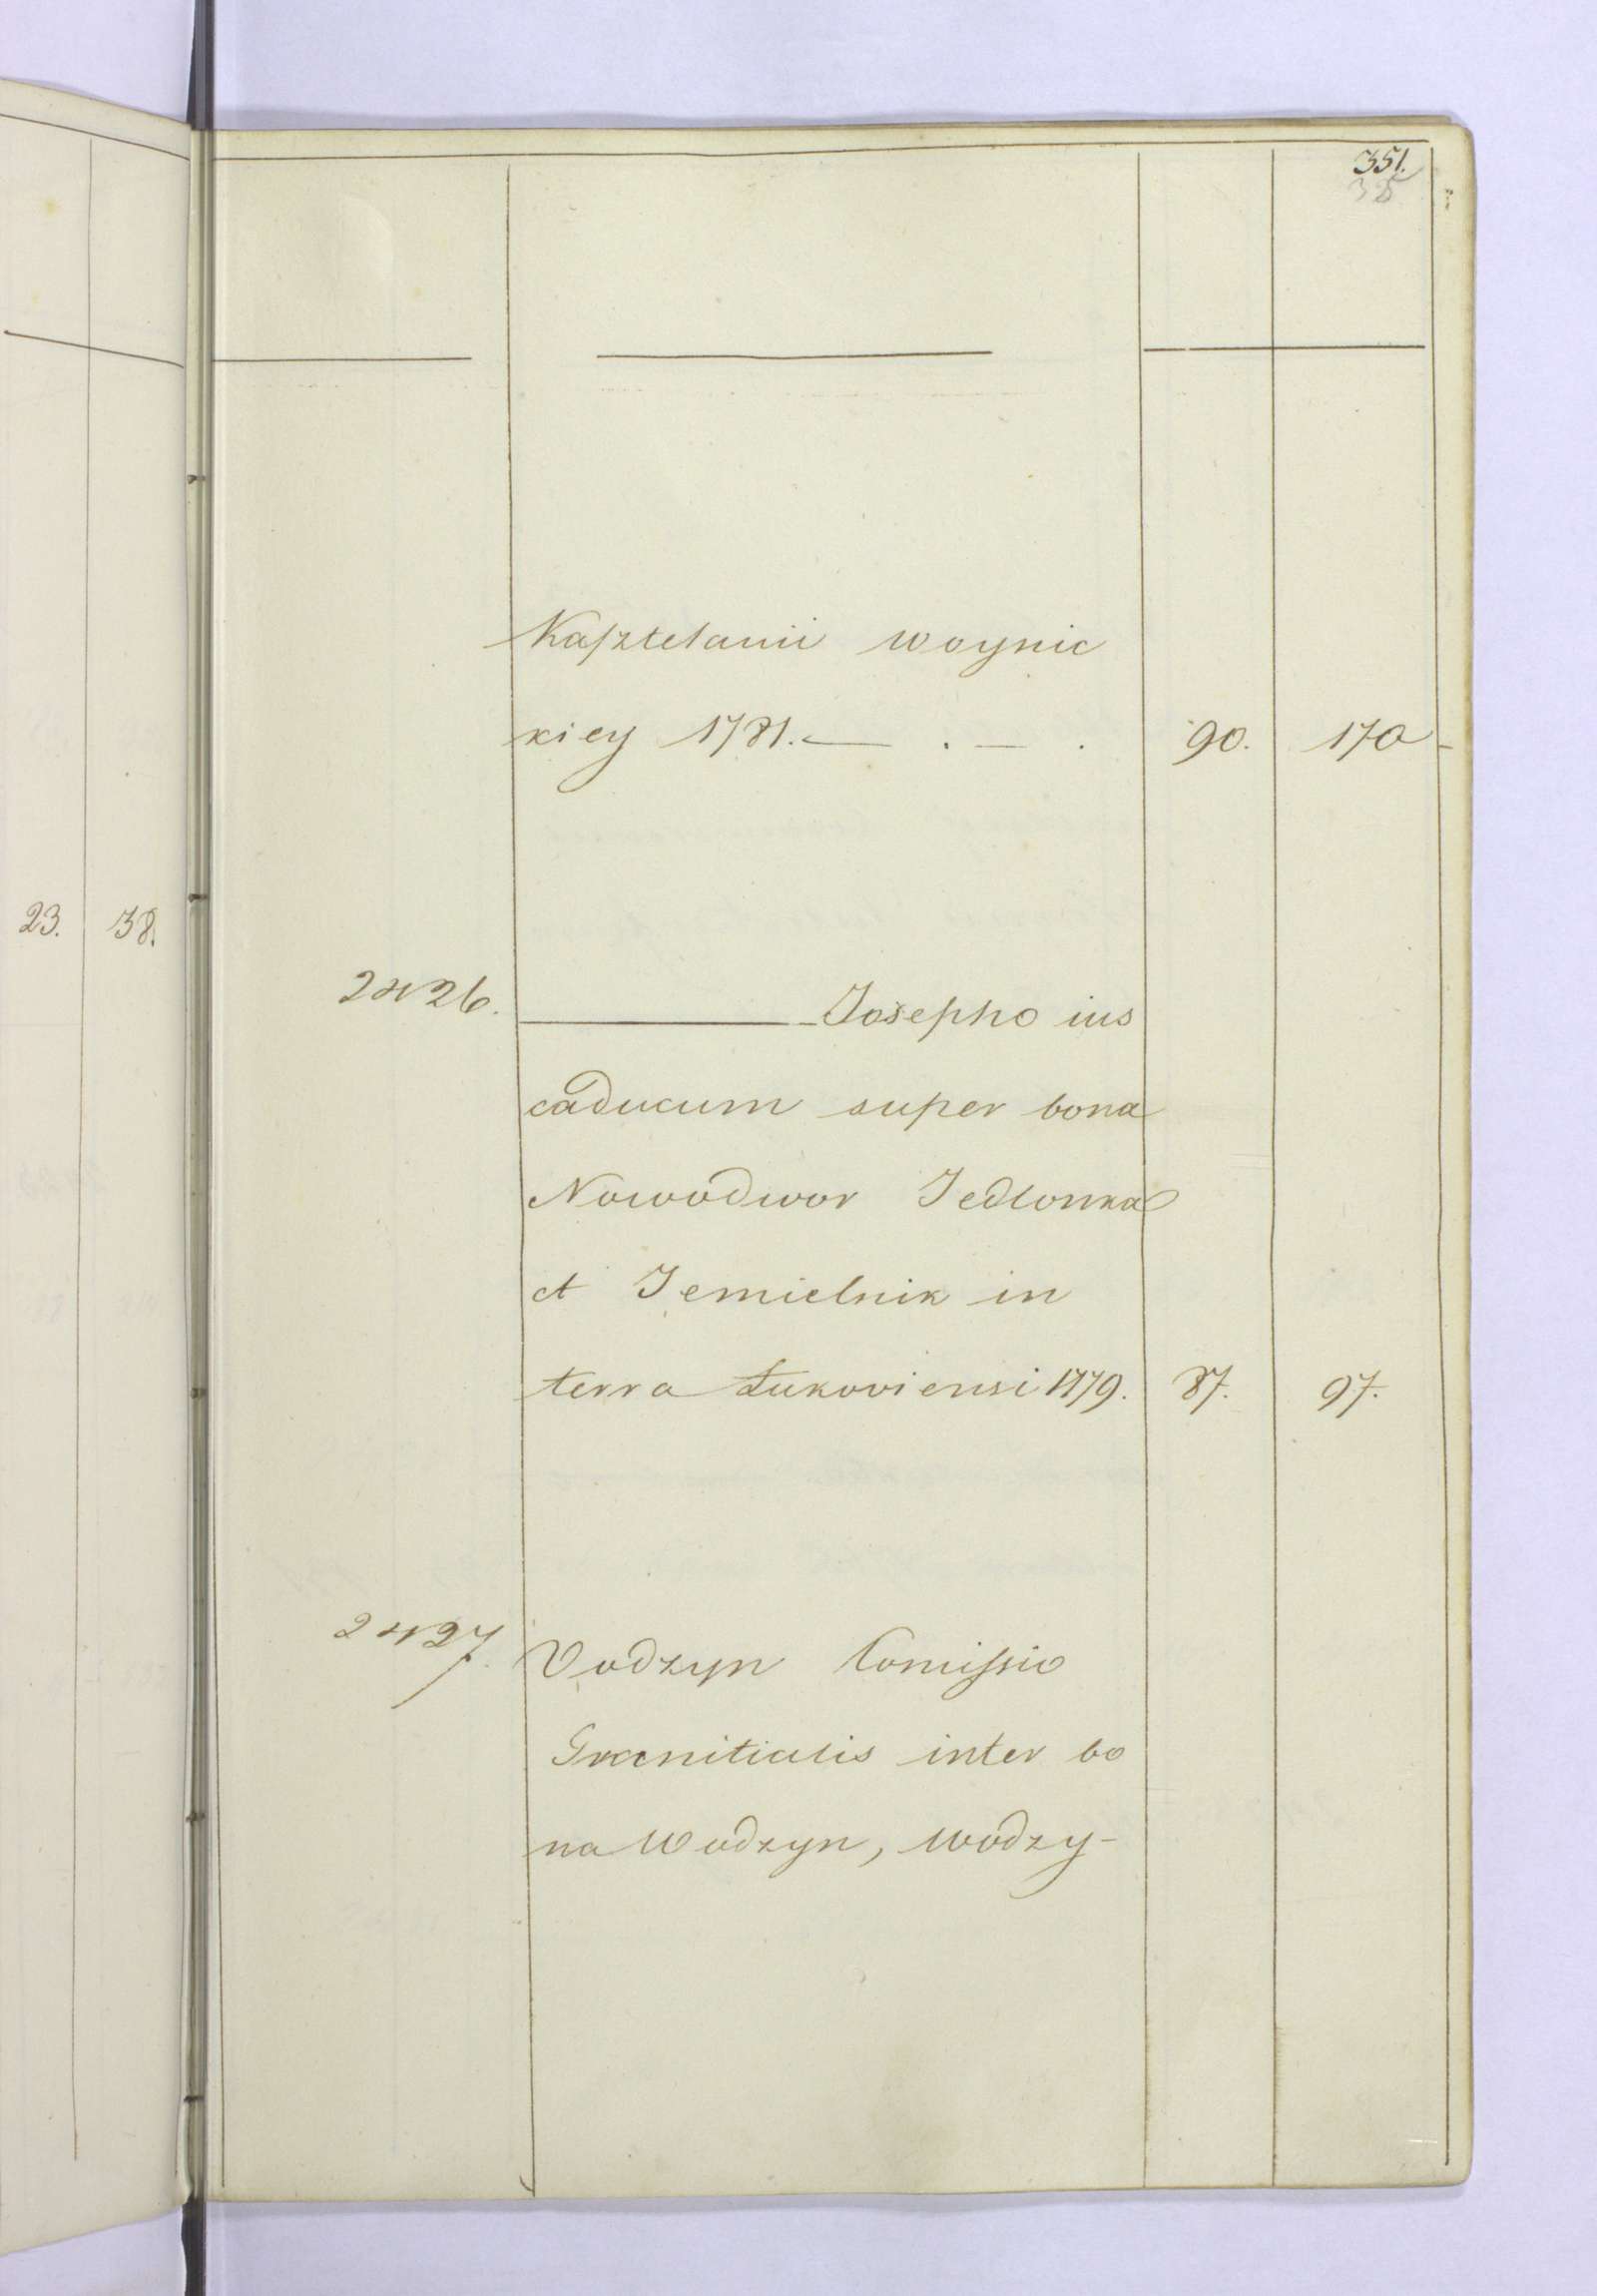 351.
Kasztelanii woynic
kiey 1781. — . — . 90. 170
23. 38.
2426. Josepho ius
caducum super bona
Nowodwor Jedlonka
et Jemielnik in
terra Łukoviensi 1779. 87. 97.
2427. Vodzyn Comissio
Granitialis inter bo
na Wodzyn, Wodzy-